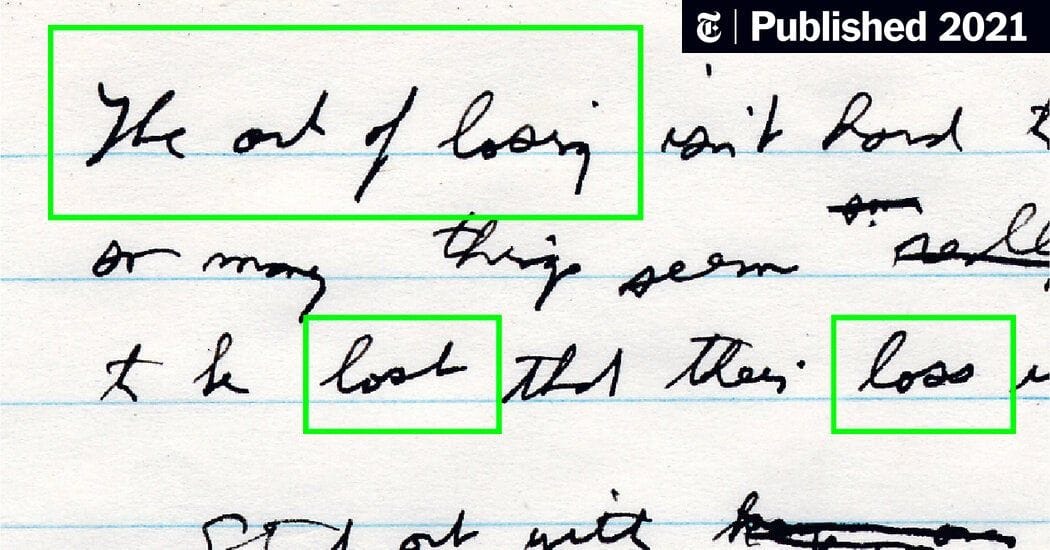 Published 2021
The art of losing isn't hard t
so many things seem
to be lost that their loss
out with